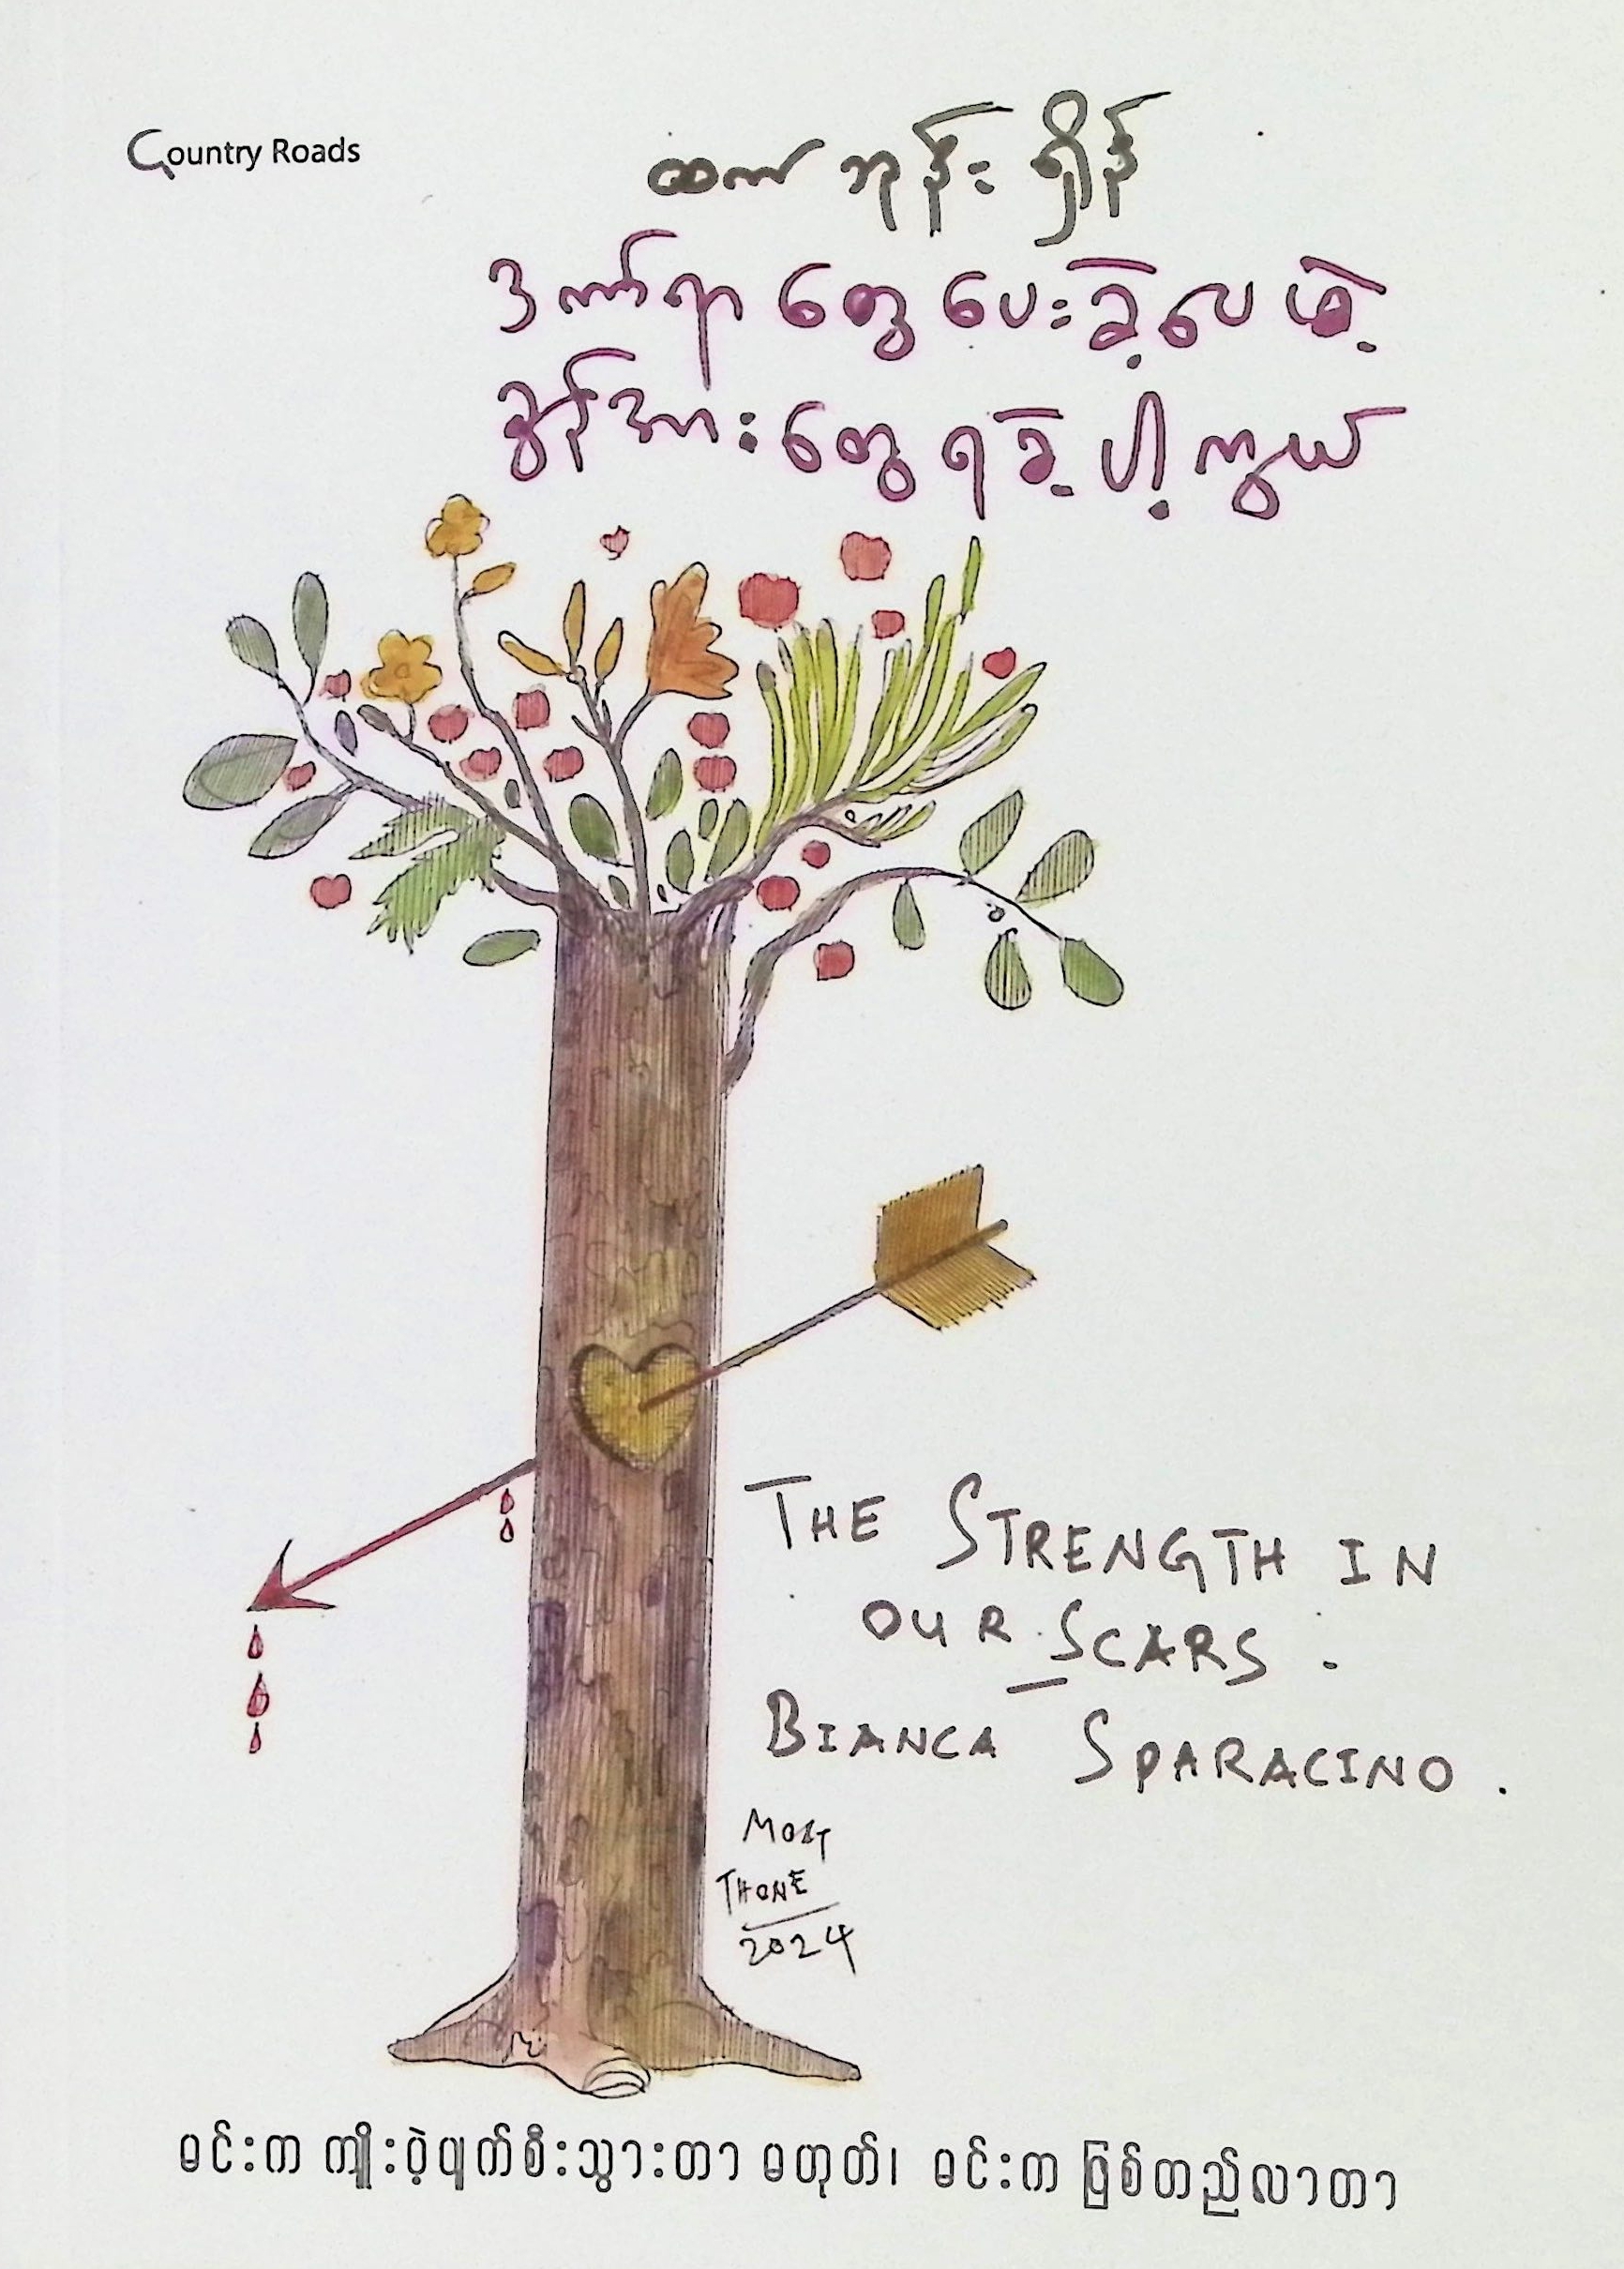 Country Roads
ထက် ဘုန်း ရှိန်
ဒဏ်ရာ တွေ ပေးခဲ့ပေမဲ့
ခွန်အားတွေ ရခဲ့ပါ့ကွယ်
THE STRENGTH IN
OUR SCARS.
BIANCA SPARACINO.
THONE
2024
မင်းက ကျိုးပဲ့ပျက်စီးသွားတာ မဟုတ်၊ မင်းက ဖြစ်တည်လာတာ